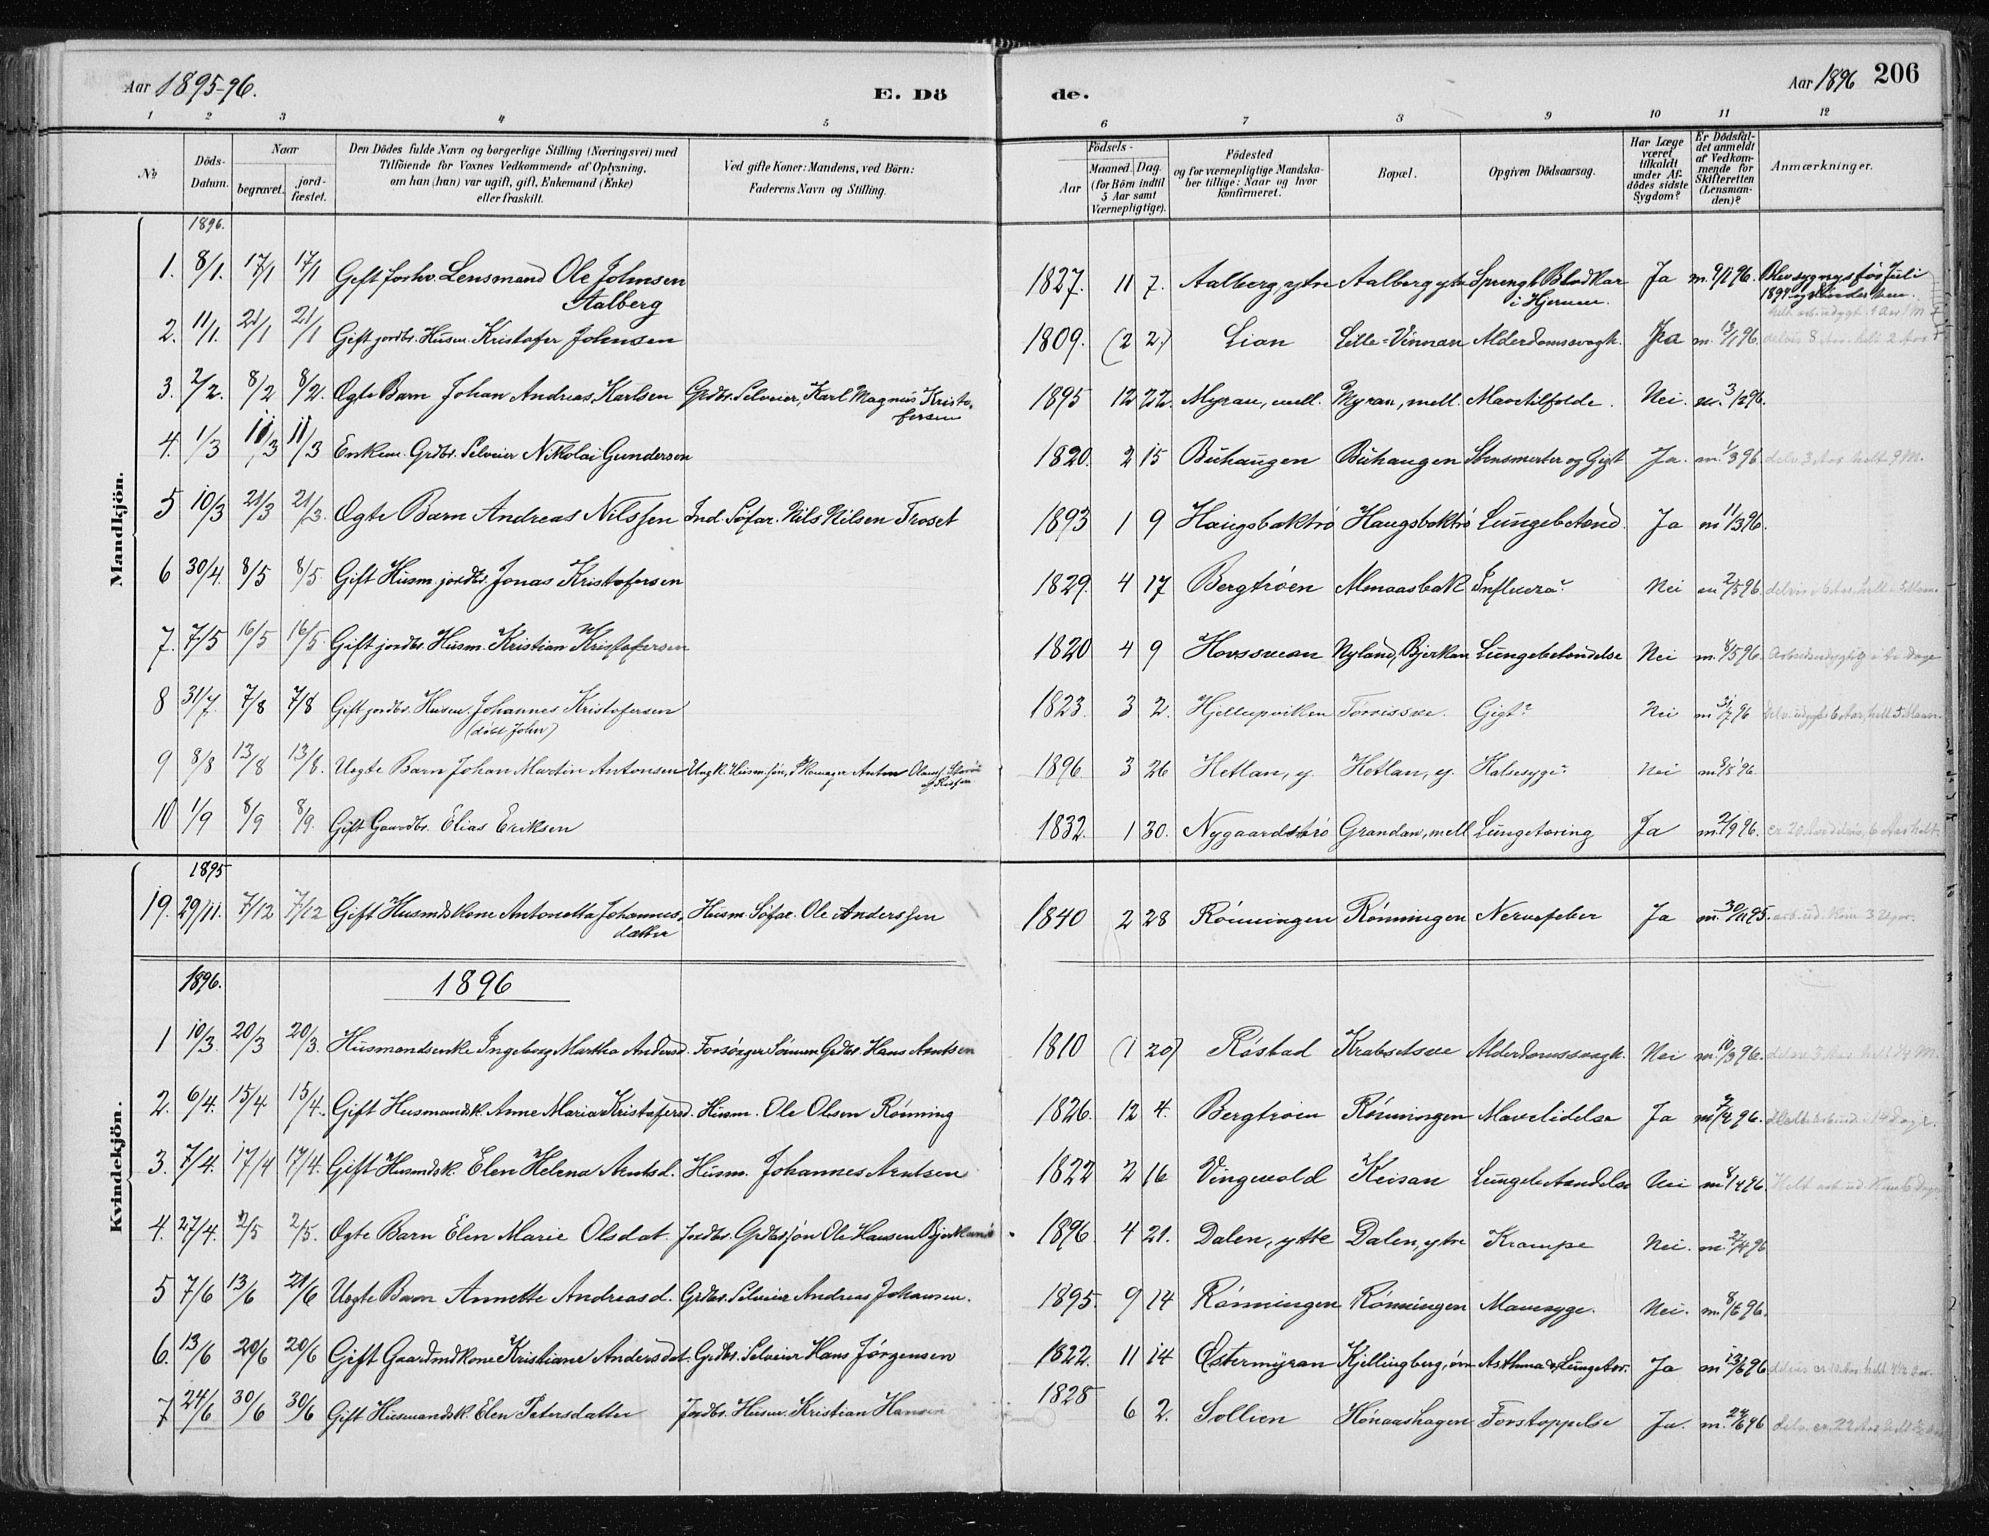 Aar 1895-96. E. Döde. Aar 1896 206
1 2 3 4 5 6 7 8 9 10 11 12
№ Döds-Datum. Naar begravet. jord-fæstet. Den Dödes fulde Navn og borgerlige Stilling (Næringsvei) med Tilföiende for Voxnes Vedkommende af Oplysning, om han (hun) var ugift, gift, Enkemand (Enke) eller fraskilt. Ved gifte Koner: Mandens, ved Börn: Faderens Navn og Stilling. Födsels- Aar Maaned. Dag. (for Börn indtil 5 Aar samt Værnepligtige). Födested og for værnepligtige Mandskaber tillige: Naar og hvor konfirmeret. Bopæl. Opgiven Dödsaarsag. Har Læge været tilkaldt under Afdödes sidste Sygdom? Er Dödsfaldet anmeldt af Vedkommende for Skifteretten (Lensmanden)? Anmærkninger.
Mandkjön.
1896.
1. 8/1. 17/1 17/1 Gift forhv. Lensmand Ole Johnsen Aalberg 1827. 11 7. Aalberg, ytre Aalberg ytre Sprengt Blodkar i Hjernen. Ja m. 9/1 96. Blev sygnys før Juli
2. 11/1. 21/1 21/1 Gift jordbr. Husm. Kristofer Johnsen 1809. (2 2.) Lian Lille-Vinnan Alderdomssvagh. Ja m. 13/1 96. delvis 8 Aar. helt 2 Aar
3. 2/2. 8/2 8/2. Ægte Barn Johan Andreas Karlsen Grdbr. Selveier, Karl Magnus Kristofersen 1895 12 22. Myran, mell. Myran, mell. Mavetilfælde. Nei. m. 3/2 96.
4. 1/3 11/3 11/3 Enkem. Grdbr. Selveier Nikolai Gundersen 1820. 2 15 Buhaugen Buhaugen Stensmerter og Gigt Ja. m. 1/3 96 delv. 3 Aar helt 9 M.
5 10/3 21/3 21/3. Ægte Barn Andreas Nilssen Ind. Søfar. Nils Nilsen Troset 1893 1 9 Haugsbaktrø Haugsbaktrø Lungebetænd. Ja m 11/3 96.
6 30/4. 8/5 8/5 Gift Husm. jordbr. Jonas Kristofersen 1829. 4 17 Bergtrøen Almaasbak Influenza Nei m 2/5 96.
7. 7/5 16/5 16/5. Gift jordbr. Husm. Kristian Kristofersen 1820 4 9 Hovssvean Nyland, Bjerkan Lungebetændelse Nei m. 8/5 96.
8 31/7. 7/8 7/8 Gift jordbr. Husm. Johannes Kristofersen (døbt John) 1823. 3 2. Hjellupviken Torrissve. Gigt Nei m 31/7 96
9 8/8 13/8 13/8. Uægte Barn Johan Martin Antonsen Ungk. Husm. søn, Skomager Anton 1896 3 26 Hetlan, y. Hetlan, y. Halssyge Nei m 8/8 96.
10 1/9 8/9 8/9. Gift Gaardbr. Elias Eriksen 1832. 1 30. Nygaardstrø Grandan, mell Lungetæring Ja m. 2/9 96. cr. 20 Aar delvis, 6 Aar helt.
Kvindekjön.
1895
19. 29/11. 7/12 7/12 Gift Husmdskone Antonetta Johannesdatter Husm. Søfar. Ole Anderssen 1840 2 28 Rønningen Rønningen Nervefeber Ja m. 30/11 95.
1896. 1896
1 10/3. 20/3 20/3. Husmandsenke Ingeborg Martha Andersd. Forsørger Sønnen Grdbr. Hans Arntsen 1810 (1 20) Røstad Krabsetsve Alderdomssvagh. Nei m. 10/3 96.
2. 6/4. 15/4 15/4. Gift Husmandsk. Anne Maria Kristofersd. Husm. Ole Olssen Rønning 1826. 12 4. Bergtrøen Rønningen Mavelidelse Ja m 7/4 96.
3. 7/4. 17/4 17/4. Gift Husmdsk. Elen Helena Arntsd. Husm. Johannes Arntsen 1822 2 16 Vingevold Keisan Lungebetændelse Nei m 8/4 96.
4. 27/4. 2/5 2/5. Ægte Barn Elen Marie Olsdat. Jordbr. Grdbssøn Ole Hansen 1896. 4 21. Dalen, ytre Dalen, ytre Krampe Nei. m. 27/4 96
5 7/6 13/6 21/6 Uægte Barn Annette Andreasd. Grdbr. Selveier Andreas Johansen. 1895. 9 14 Rønningen Rønningen Mavesyge. Nei. m. 8/6 96.
6. 13/6 20/6 20/6 Gift Gaardmdkone Kristiane Andersdat. Grdbr. Selveier Hans Jørgensen 1822. 11 14 Østermyran Kjellingberg, øvr Asthma & Lungetær. Ja m 13/6 96
7 24/6 30/6 30/6 Gift Husmandsk. Elen Petersdatter Jordbr. Husm. Kristian Hansen 1828 6 2. Sollien Hønaashagen Forstoppelse Ja. m. 24/6 96